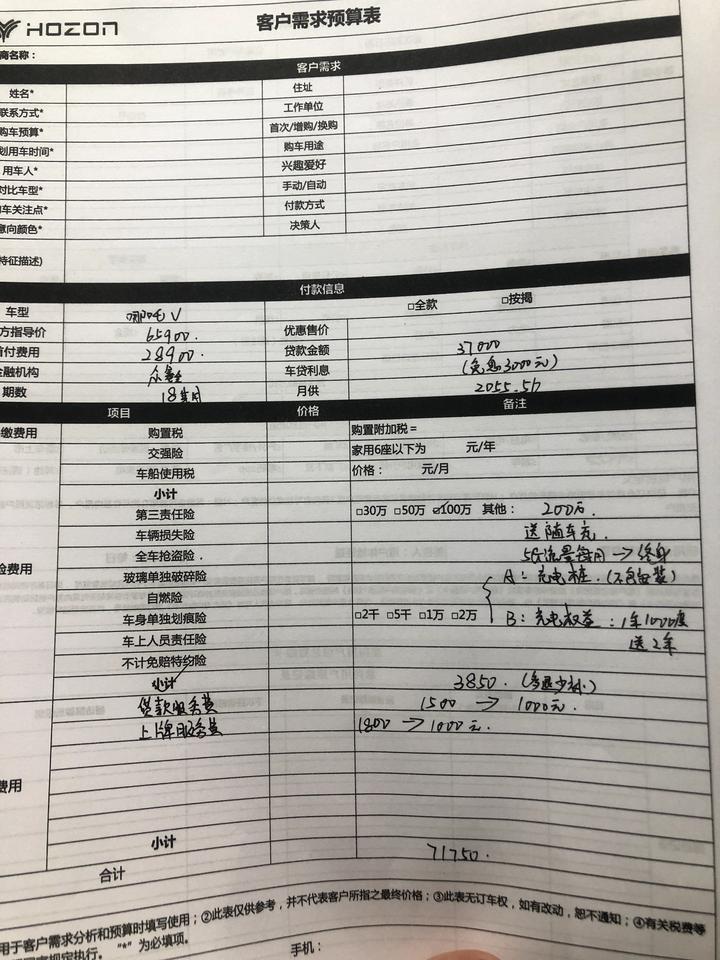 HOZON 客户需求预算表
商名称：
客户需求
姓名* 住址
联系方式* 工作单位
购车预算* 首次/增购/换购
划用车时间* 购车用途
用车人* 兴趣爱好
对比车型* 手动/自动
车关注点* 付款方式
意向颜色* 决策人
特征描述)
付款信息
车型 哪吒V □全款 □按揭
方指导价 65900. 优惠售价
首付费用 28900. 贷款金额 37000
金融机构 众 车贷利息 (免息3000元)
期数 18 月供 2055.56
项目 价格 备注
缴费用 购置税 购置附加税=
交强险 家用6座以下为 元/年
车船使用税 价格： 元/月
小计
第三责任险 □30万 □50万 ☑100万 其他： 200万.
车辆损失险 送随车充.
险费用 全车抢盗险. 5G流量每月→终身
玻璃单独破碎险 A：充电桩.(不含安装)
自燃险
车身单独划痕险 □2千 □5千 □1万 □2万 B：充电权益：1年1000度
车上人员责任险 送2年
不计免赔特约险
小计 3850.(多退少补)
贷款服务费 1500→1000元.
上牌服务费 1800→1000元.
费用
小计
合计 71750.
用于客户需求分析和预算时填写使用；②此表仅供参考，并不代表客户所指之最终价格；③此表无订车权，如有改动，恕不通知；④有关税费等
规定执行。 "*"为必填项。
手机：